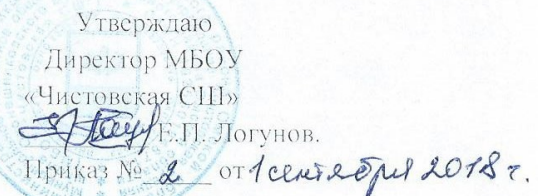 Утверждаю
Директор МБОУ
«Чистовская СШ»
Е.П. Логунов.
Приказ № 2 от 1 сентября 2018 г.